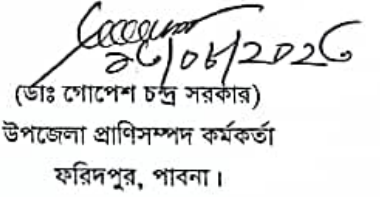 ২৬/০৮/2026
(ডাঃ গোপেশ চন্দ্র সরকার)
উপজেলা প্রাণিসম্পদ কর্মকর্তা
ফরিদপুর, পাবনা।